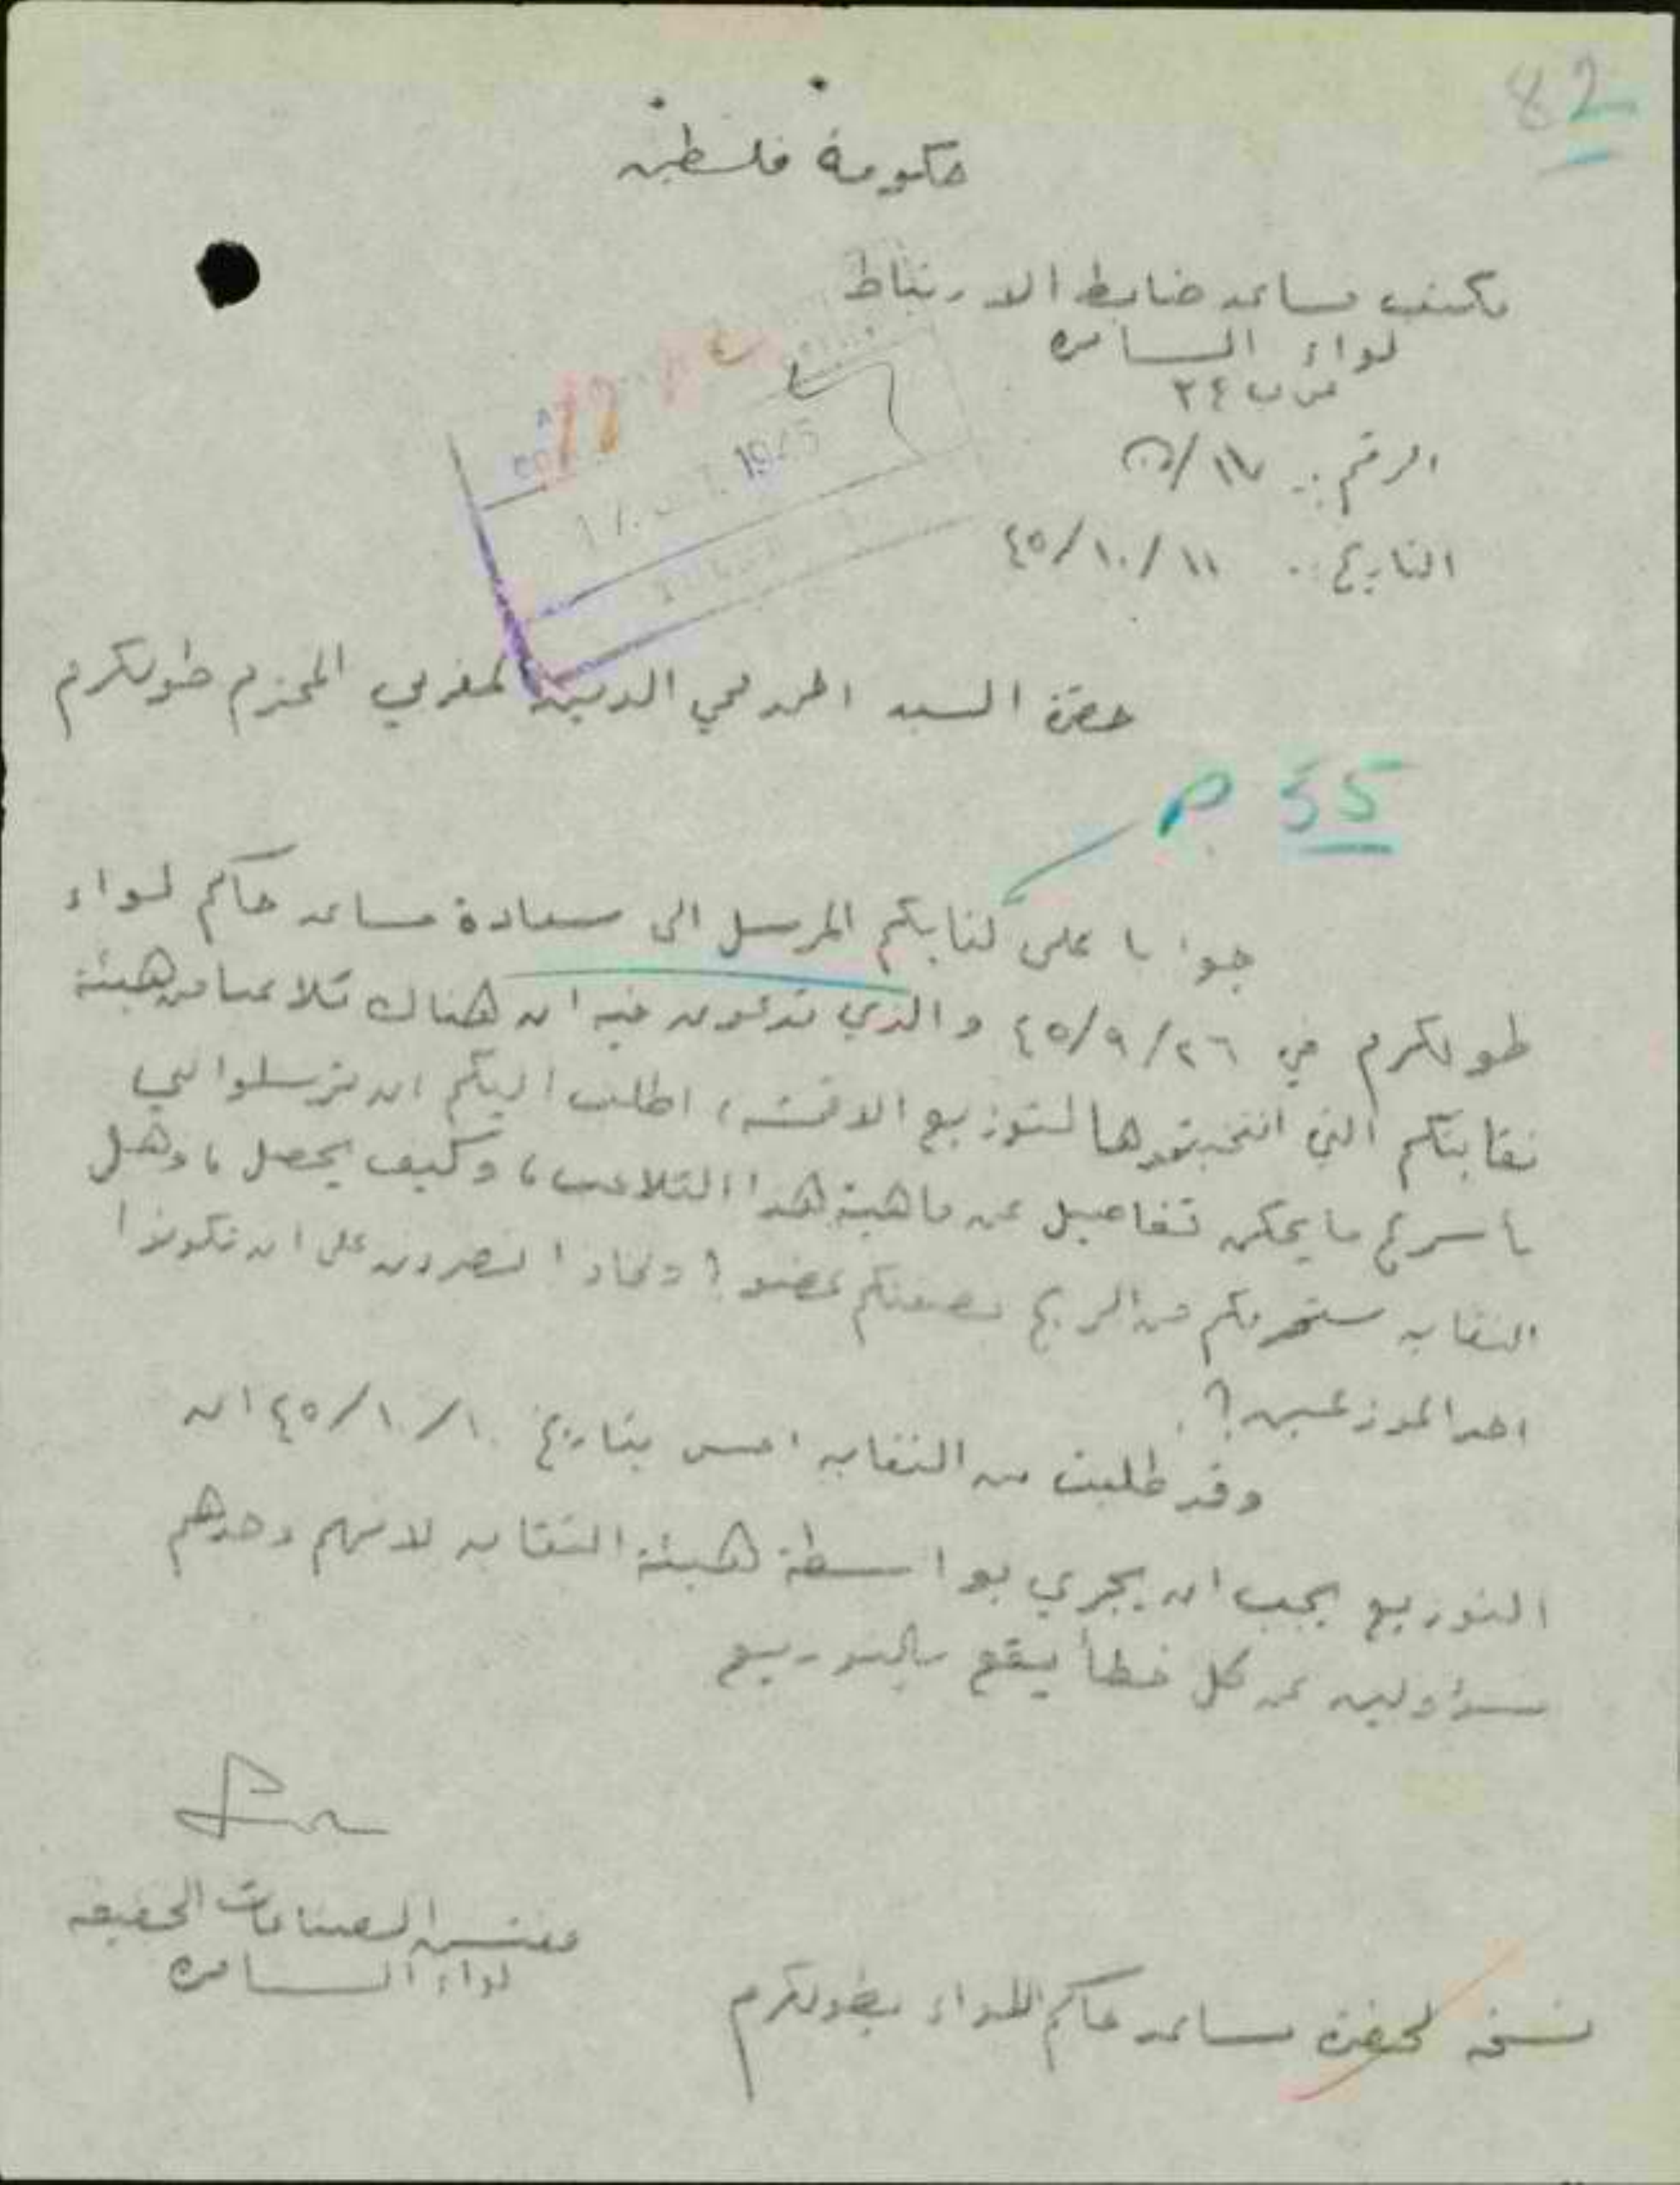 82
حكومة فلسطين
مكتب مساعد ضابط الارتباط
لواء السامره
ص ب ٢٤
الرقم :.
التاريخ :. ١١/١٠/٤٥
1945
حضرة السيد احمد محي الدين المغربي المحترم طولكرم
P. 35
جوابا على كتابكم المرسل الى سعادة مساعد حاكم لواء
طولكرم في ٢٦/٩/٤٥ والذي تدعون فيه ان هناك تلاعبا من هيئة
نقابتكم التي انتخبتموها لتوزيع الاقمشه، اطلب اليكم ان ترسلوا لي
باسرع ما يمكن تفاصيل عن ماهية هذا التلاعب، وكيف يحصل، وهل
النقابه ستحرمكم من الربح بصفتكم عضو؟ ولماذا تصرون على ان تكونوا
احد الموزعين؟.
وقد طلبت من النقابه امس بتاريخ ١٠/١٠/٤٥ ان
التوزيع يجب ان يجري بواسطة هيئة النقابه لانهم وحدهم
مسؤولين عن كل خطأ يقع بالتوزيع
مفتش الصناعات الخفيفه
لواء السامره
نسخه لحضرة مساعد حاكم اللواء بطولكرم